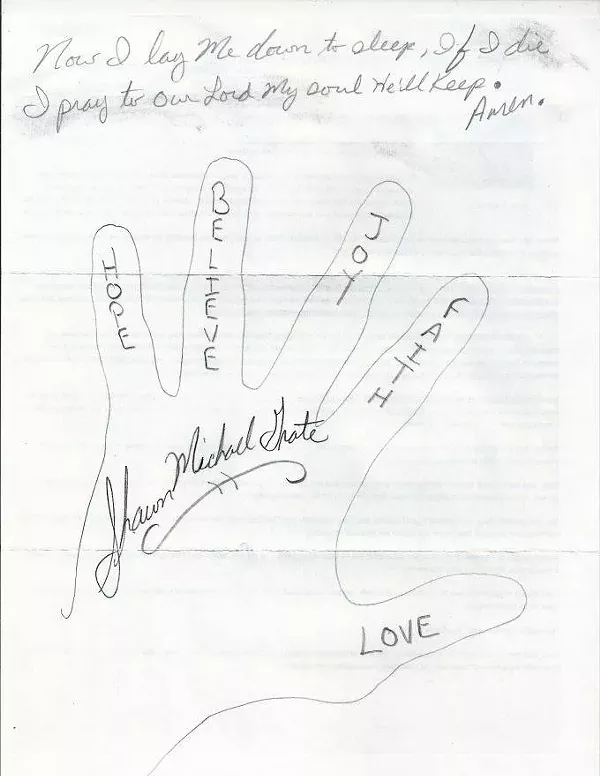 Now I lay Me down to sleep, If I die
I pray to Our Lord My soul He'll Keep.
Amen.
HOPE
BELIEVE
JOY
FAITH
Shawn Michael Grate
LOVE